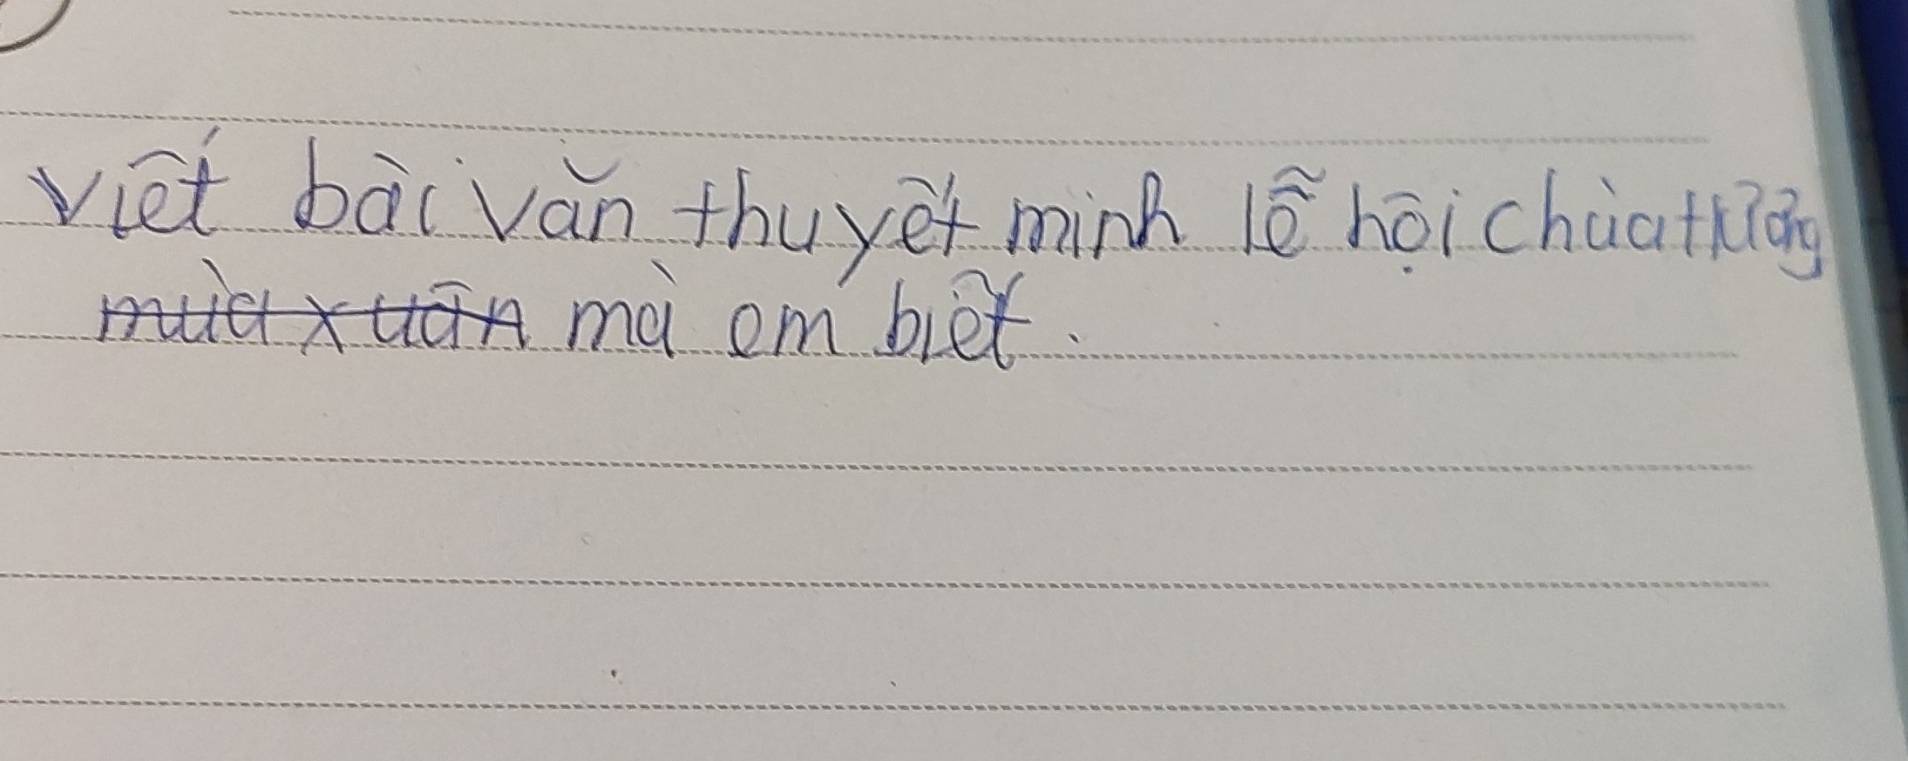 Viết bài văn thuyết minh lễ hội chùa
mùa xuân mà em biết.